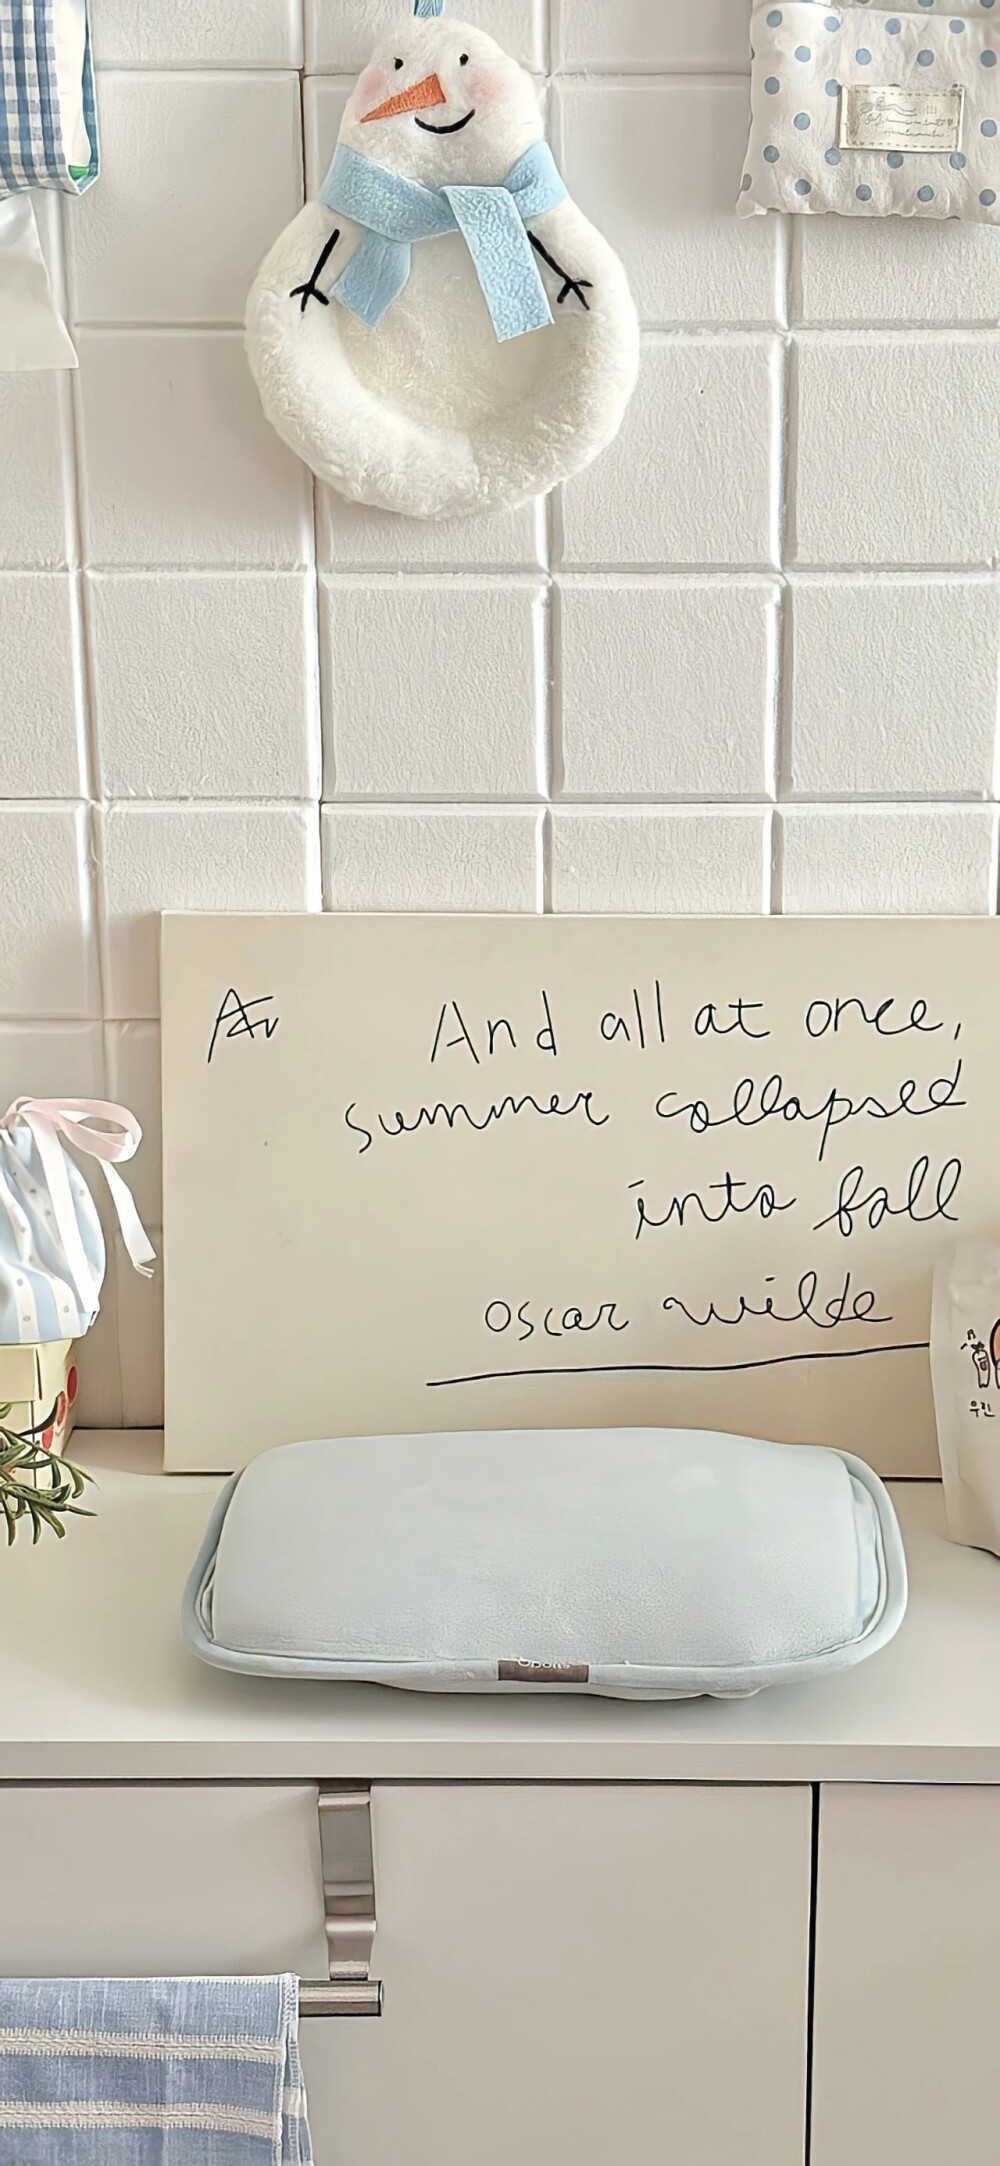 And all at once,
summer collapsed
into fall
oscar wilde
우린